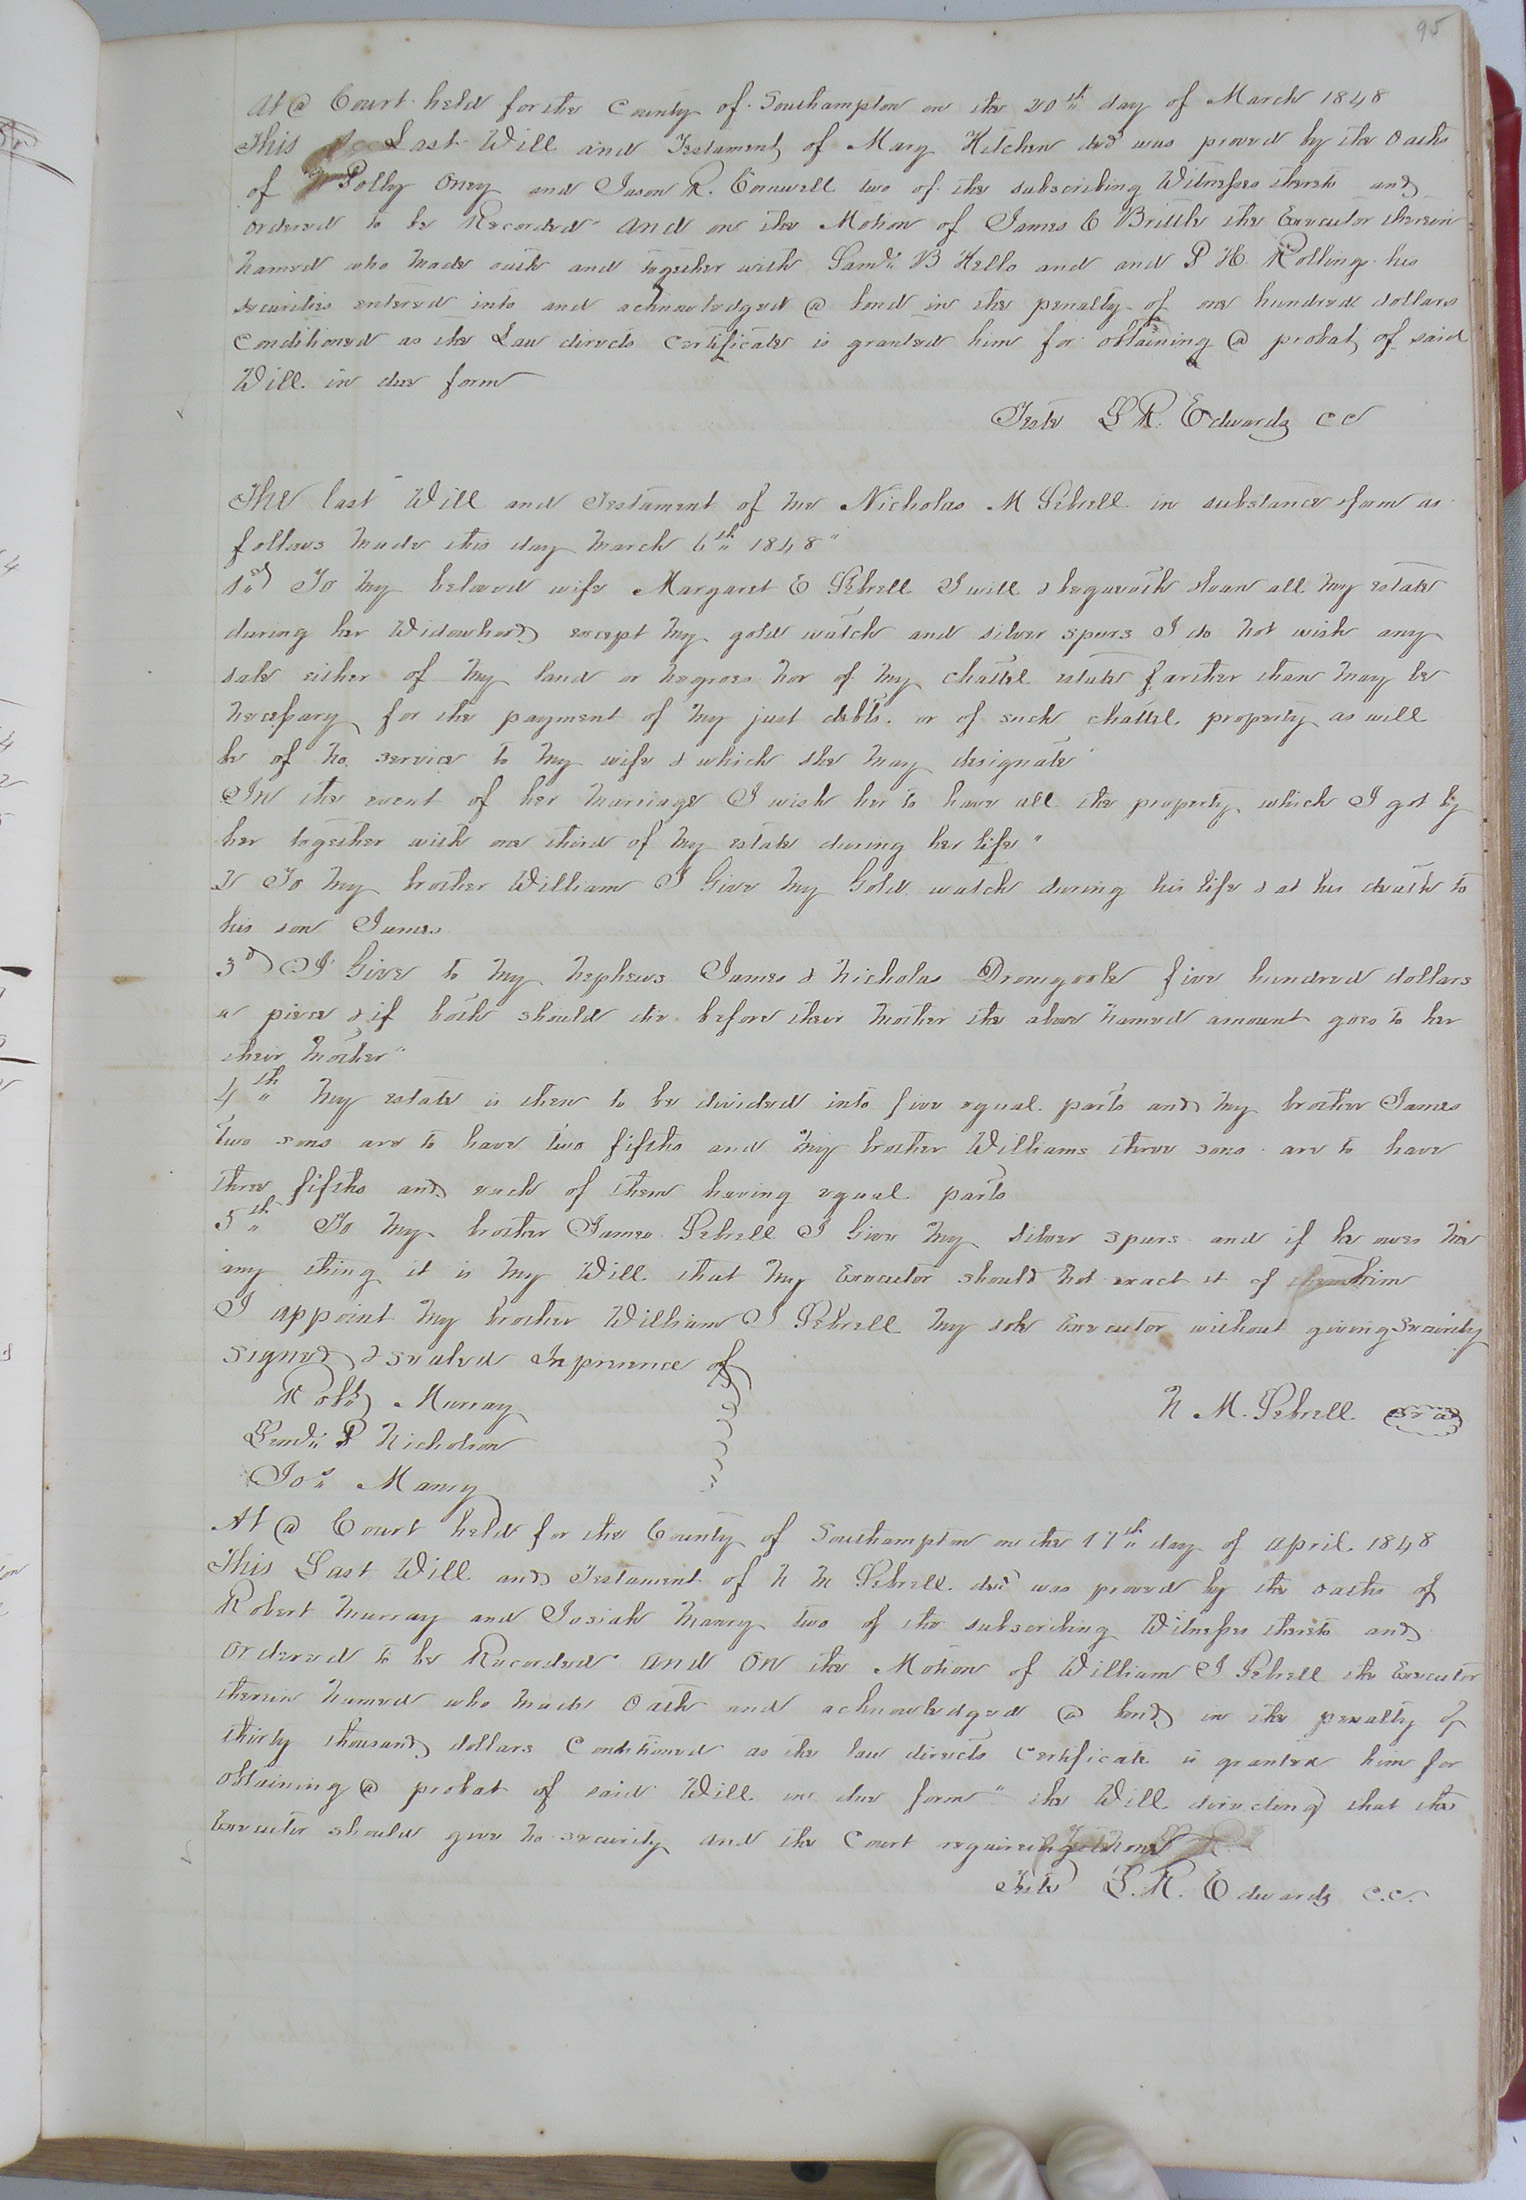 95
At @ Court held for the County of Southampton on the 20th day of March 1848
This Last Will and Testament of Mary Kitchen decd was proved by the Oaths
of Polly Oney and Jason R. Cornwell two of the subscribing Witnesses thereto and
ordered to be Recorded and on the Motion of James E Brittle the Executor therein
named who made oath and together with Saml. B Kello and and P H. Rollings his
securities entered into and acknowledged @ bond in the penalty of one hundred dollars
Conditioned as the Law directs Certificate is granted him for obtaining @ probat of said
Will in due form
Teste L R. Edwards CC
The last Will and Testament of me Nicholas M Sebrell in substance & form as
follows made this day March 6th 1848"
1st To my beloved wife Margaret E Sebrell I will & bequeath & loan all my estate
during her Widowhood except my gold watch and silver spurs I do not wish any
sale either of my land or negroes nor of my chattel estate farther than may be
necessary for the payment of my just debts. or of such chattel property as will
be of no service to my wife & which she may designate
In the event of her marriage I wish her to have all the property which I got by
her together with one third of my estate during her life"
2 To my brother William I Give my Gold watch during his life & at his death to
his son James
3d I Give to my nephews James & Nicholas Dromgoole five hundred dollars
a piece & if both should die before their mother the above named amount goes to her
their mother"
4th My estate is then to be divided into five equal parts and my brother James
two sons are to have two fifths and my brother Williams three sons are to have
three fifths and each of them having equal parts
5th To my brother James Sebrell I Give my silver spurs and if he owes me
any thing it is my Will that my Executor should not exact it of him
I appoint my brother William J Sebrell my sole Executor without giving security
signed & sealed In presence of
Robt. Murray
N M. Sebrell seal
P Nicholson
Jos. Manry
At @ Court held for the County of Southampton on the 17th day of April 1848
This Last Will and Testament of N M Sebrell decd was proved by the oaths of
Robert Murray and Josiah Manry two of the subscribing Witnesses thereto and
ordered to be Recorded and on the Motion of William J Sebrell the Executor
therein named who made Oath and acknowledged @ bond in the penalty of
thirty thousand dollars Conditioned as the law directs Certificate is granted him for
obtaining @ probat of said Will in due form" the Will directing that the
Executor should give no security and the Court requireing none
Teste L. R. Edwards C.C.